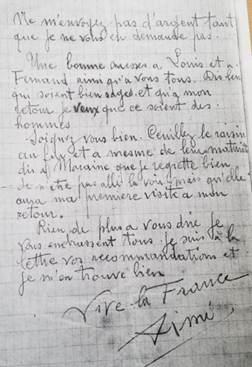 Ne m'envoyez pas d'argent tant
que je ne vous en demande pas.
Une bonne caresse a Louis et a
Fernand ainsi qu'a vous tous. Dis leur
qui soient bien sages et qu'a mon
retour je veux que ce soient des
hommes
Soignez vous bien. Cueillez le raisin
au et a mesme de leur maturité
dis a Maraine que je regrette bien
de n'etre pas allé la voir mais qu'elle
aura ma premiere visite a mon
retour.
Rien de plus a vous dire je
vous embrassent tous je suis a la
lettre vos recommandations et
je m'en trouve bien
Vive la France
Aimé